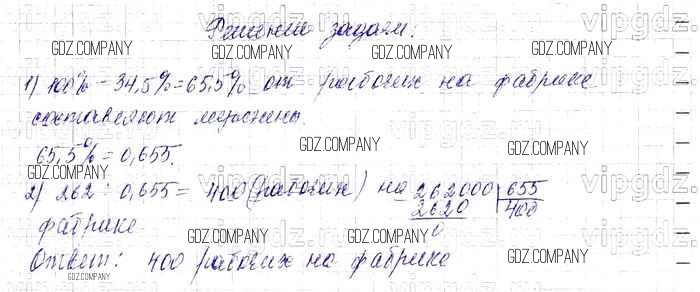 Решение задачи:
1) 100% - 34,5% = 65,5% от рабочих на фабрике
составляют мужчины.
65,5% = 0,655.
2) 262 : 0,655 = 400 (рабочих) на
фабрике
262000 655
2620 400
0
Ответ: 400 рабочих на фабрике
GDZ.COMPANY
GDZ.COMPANY
GDZ.COMPANY
GDZ.COMPANY
GDZ.COMPANY
GDZ.COMPANY
GDZ.COMPANY
GDZ.COMPANY
GDZ.COMPANY
GDZ.COMPANY
GDZ.COMPANY
vipgdz.ru
vipgdz.ru
vipgdz.ru
vipgdz.ru